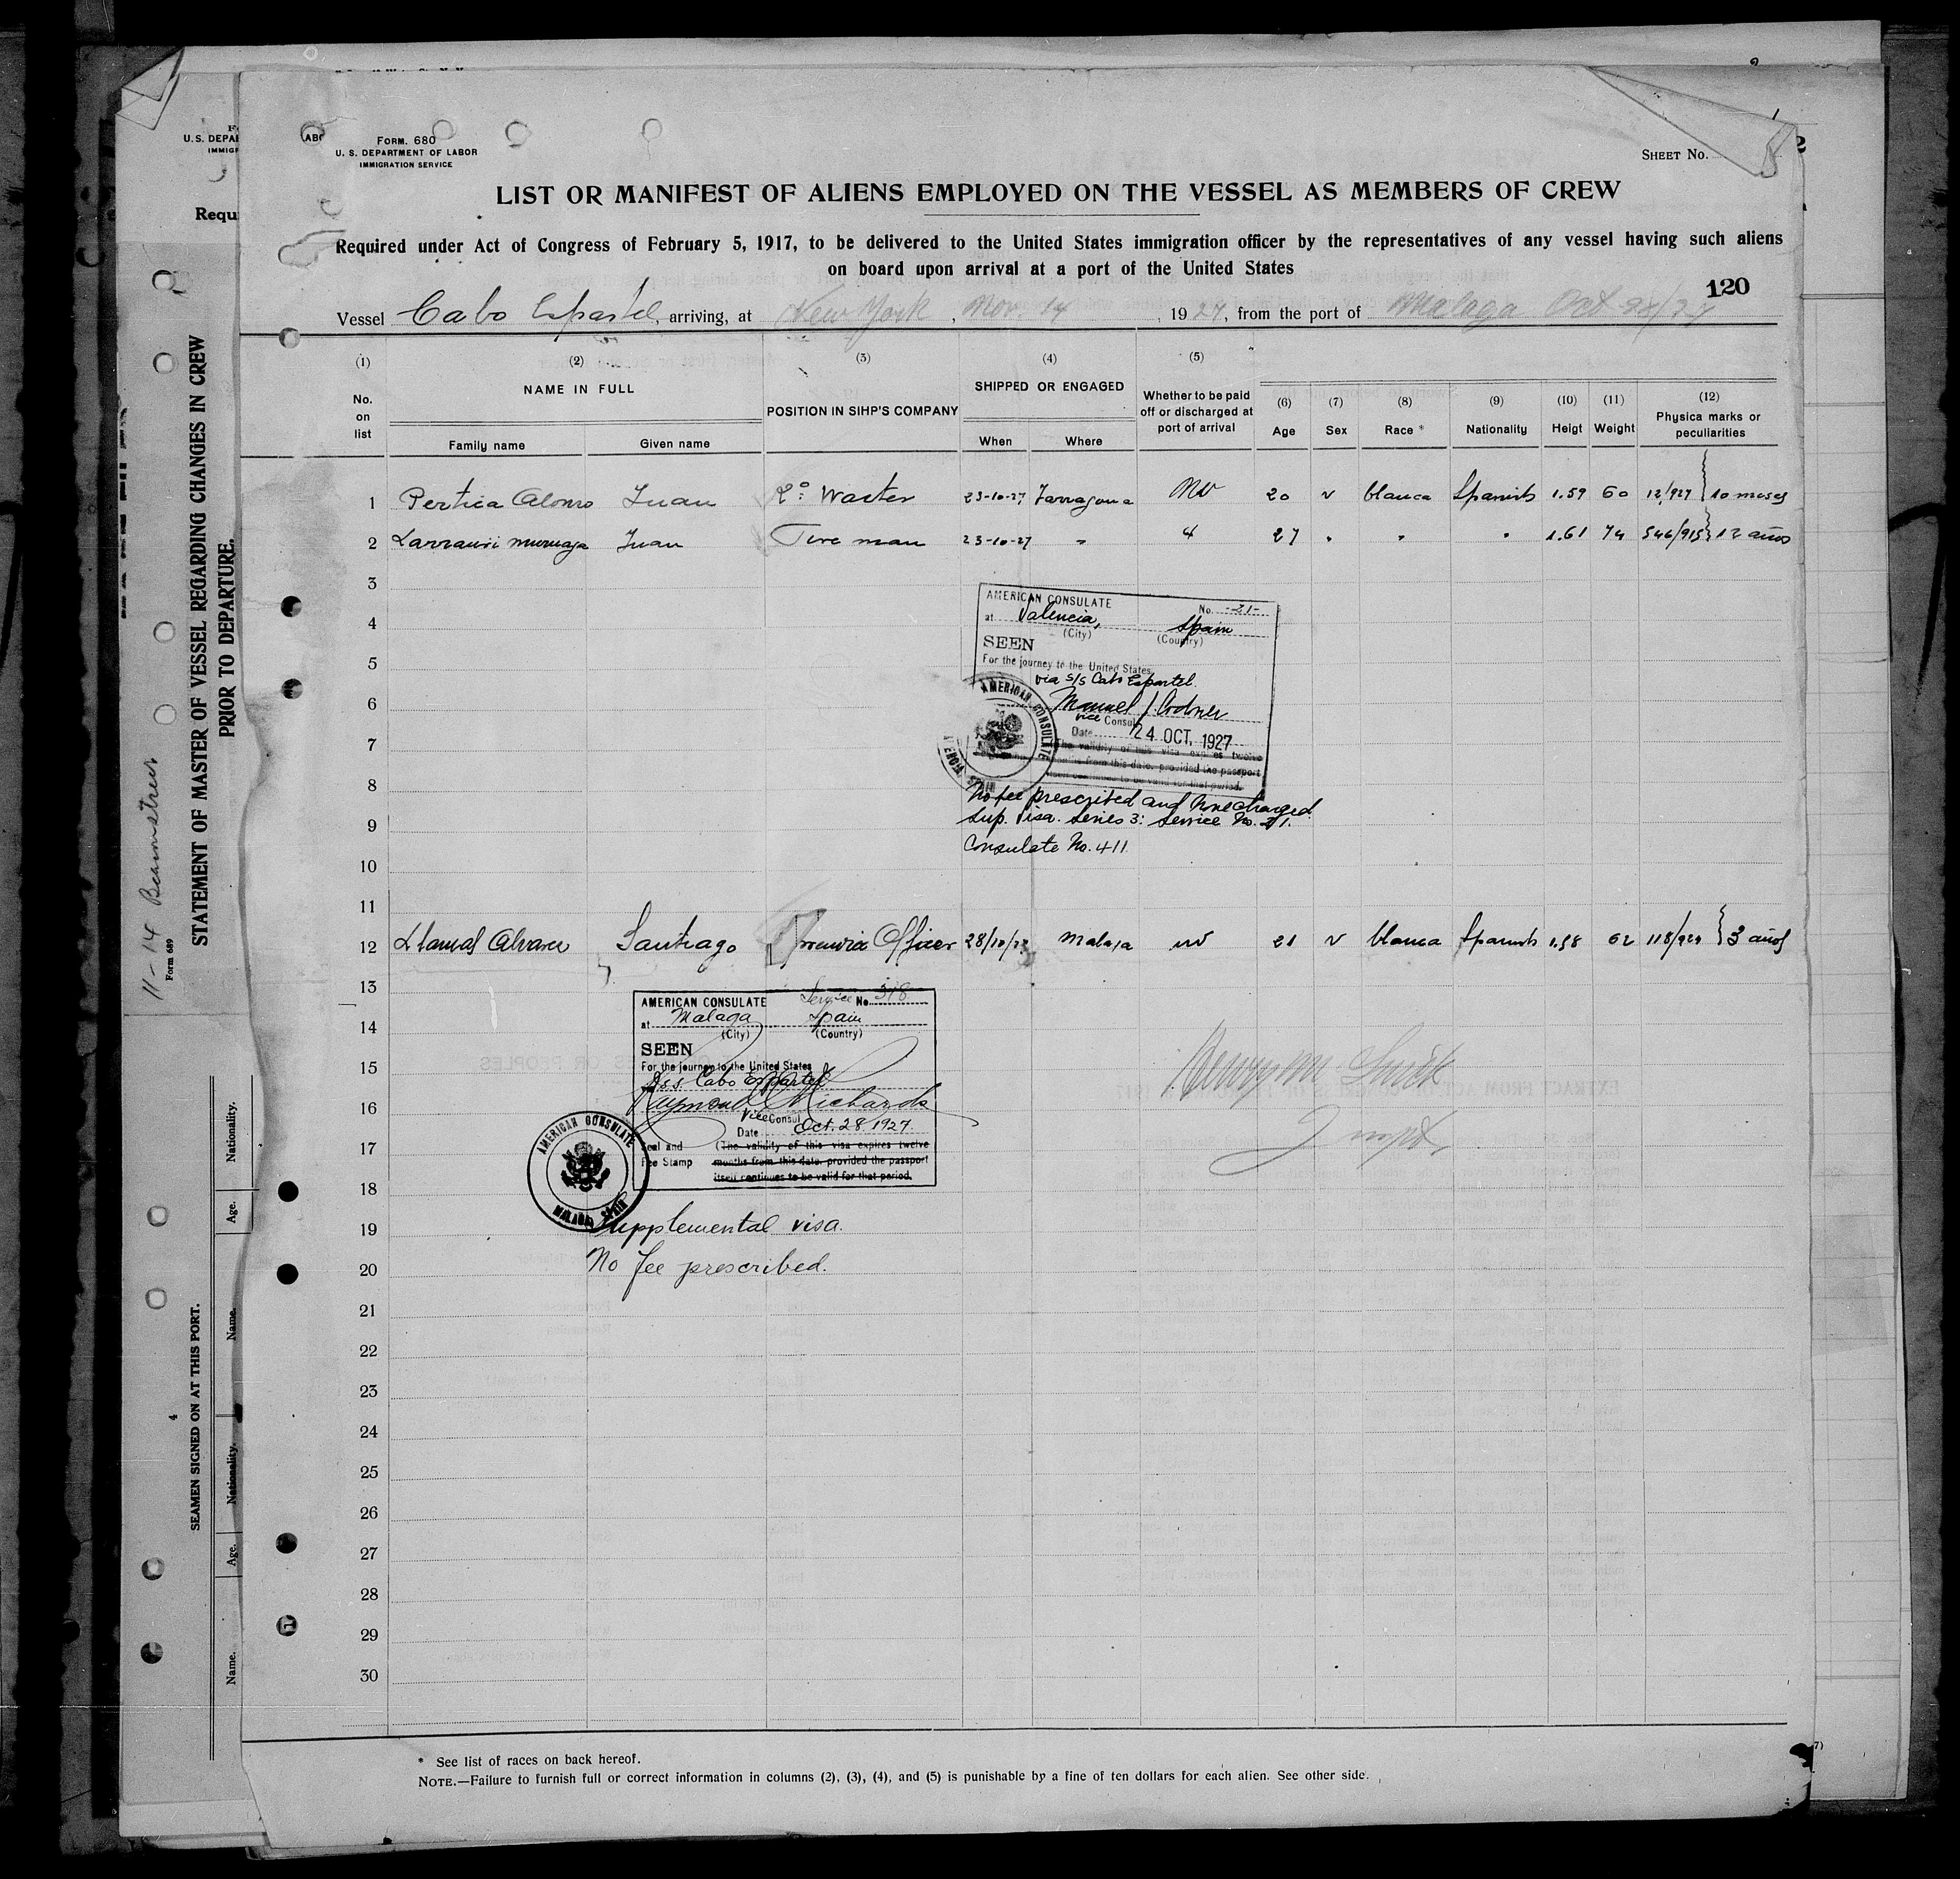 FORM. 680
U. S. DEPARTMENT OF LABOR
IMMIGRATION SERVICE
SHEET No.
LIST OR MANIFEST OF ALIENS EMPLOYED ON THE VESSEL AS MEMBERS OF CREW
Required under Act of Congress of February 5, 1917, to be delivered to the United States immigration officer by the representatives of any vessel having such aliens
on board upon arrival at a port of the United States
120
Vessel Cabo Espartel, arriving, at New York, Nov. 14, 1927, from the port of Malaga Oct 28/27
(1) (2) (3) (4) (5)
No. on list
NAME IN FULL
Family name Given name
POSITION IN SIHP'S COMPANY
SHIPPED OR ENGAGED
When Where
Whether to be paid off or discharged at port of arrival
(6) Age
(7) Sex
(8) Race *
(9) Nationality
(10) Heigt
(11) Weight
(12) Physica marks or peculiarities
1 Pertica Alonso Juan 2º Waiter 23-10-27 Tarragona No 20 v blanca Spanish 1.59 60 12/927 } 10 meses
2 Larrauri Muruaga Juan Fire man 23-10-27 " " 27 " " " 1.61 74 546/915 } 12 años
3
4
5
6
7
8
9
10
11
AMERICAN CONSULATE No. -21-
at Valencia, Spain
(City) (Country)
SEEN
For the journey to the United States
via s/s Cabo Espartel
Manuel J. Codoner
Vice Consul
Date 24 OCT. 1927
The validity of this visa expires twelve
months from this date, provided the passport
itself continues to be valid for that period.
AMERICAN CONSULATE
No fee prescribed and none charged.
Sup. Visa. Series 3: Service No. 21.
Consulate No. 411
12 Llamas Alvarez Santiago Officer 28/10/27 Malaga no 21 v blanca Spanish 1.58 62 118/924 } 3 años
13
14
15
16
17
18
19
20
21
22
23
24
25
26
27
28
29
30
AMERICAN CONSULATE Service No. 318
at Malaga Spain
(City) (Country)
SEEN
For the journey to the United States
Per s.s. Cabo Espartel
Raymond Richards
Vice Consul
Date Oct. 28 1927.
Seal and Fee Stamp
(The validity of this visa expires twelve
months from this date, provided the passport
itself continues to be valid for that period.
AMERICAN CONSULATE
MALAGA, SPAIN
Supplemental visa.
No fee prescribed.
* See list of races on back hereof.
NOTE.—Failure to furnish full or correct information in columns (2), (3), (4), and (5) is punishable by a fine of ten dollars for each alien. See other side.
STATEMENT OF MASTER OF VESSEL REGARDING CHANGES IN CREW
PRIOR TO DEPARTURE.
Form 689
11-14
SEAMEN SIGNED ON AT THIS PORT.
4
Name. Age. Nationality. Name. Age. Nationality.
U.S. DEPA
IMMIG
Requ